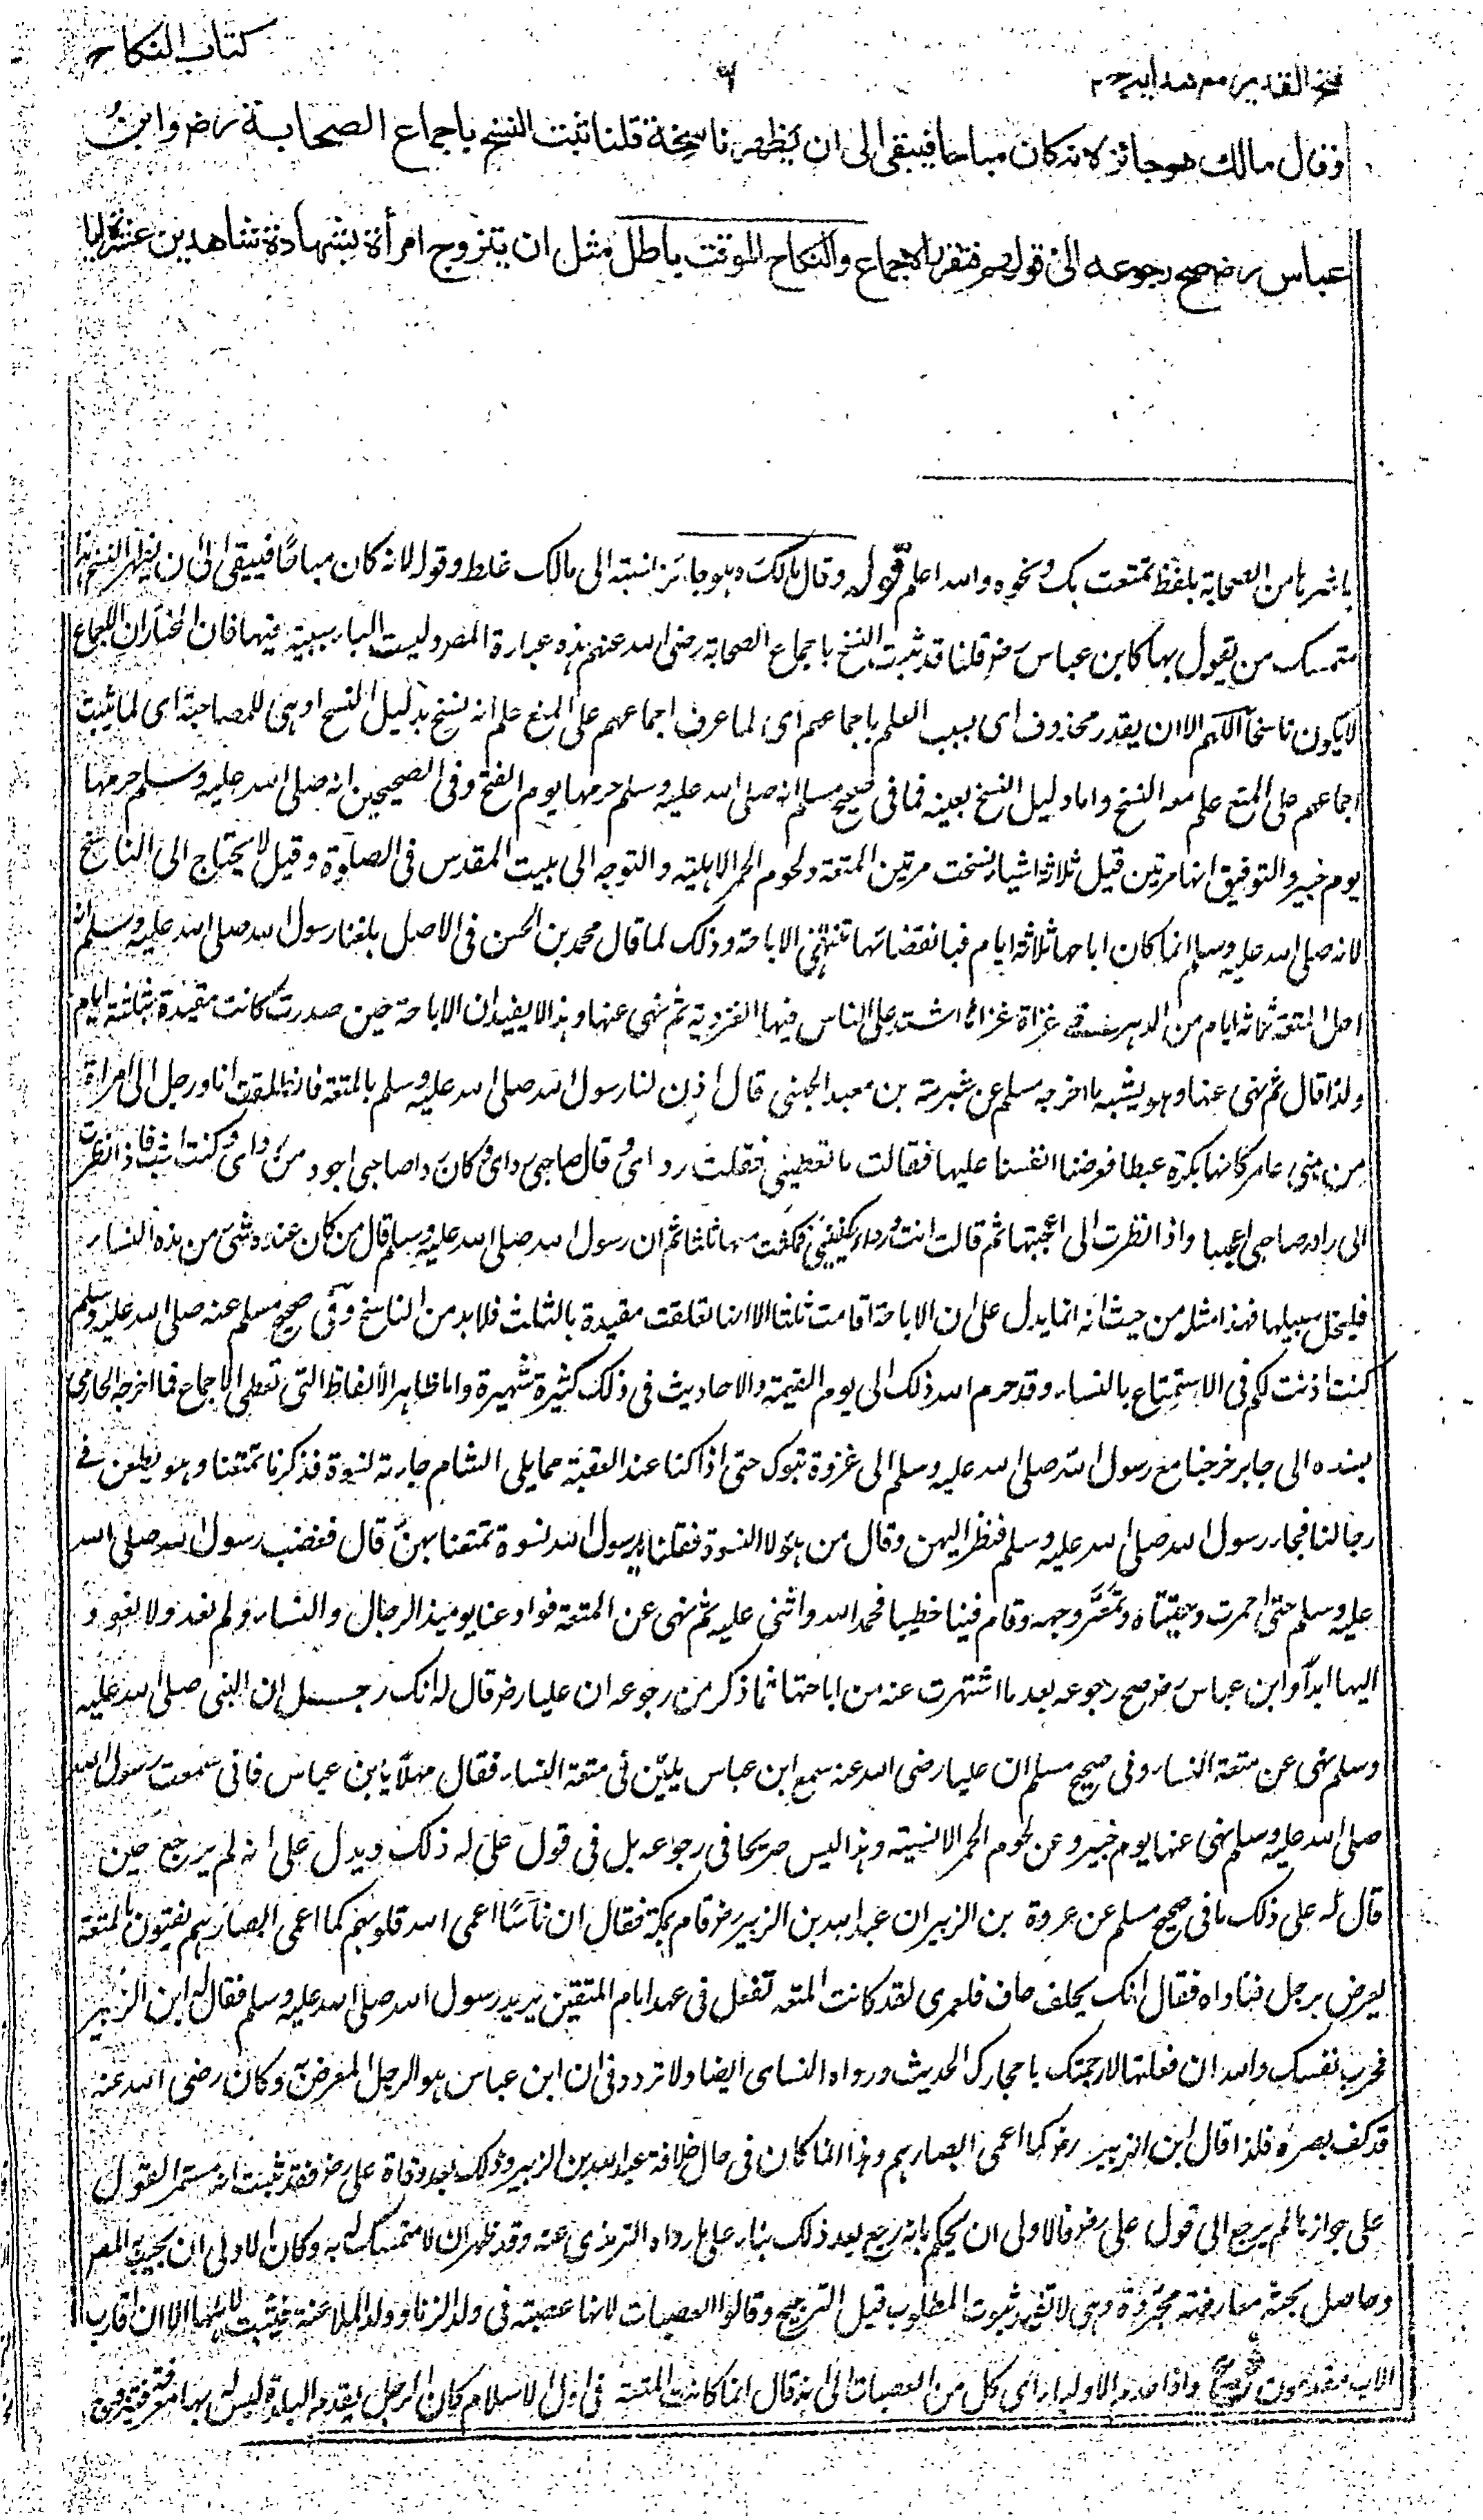 فتح القدير مع هدايه ج ٢
٦
كتاب النكاح
وقال مالك هو جائز لانه كان مباحا فيبقى الى ان يظهر ناسخه قلنا ثبت النسخ باجماع الصحابة رض وابن
عباس رض صح رجوعه الى قولهم فتقرر الاجماع والنكاح الموقت باطل مثل ان يتزوج امرأة بشهادة شاهدين عشرة ايا
باشرها من الصحابة بلفظ تمتعت بك ونحوه والله اعلم قوله وقال مالك وهو جائز نسبته الى مالك غلط وقوله لانه كان مباحًا فيبقى الى ان يظهر النسخ هذا
متمسك من يقول بها كابن عباس رض قلنا قد ثبت النسخ باجماع الصحابة رضى الله عنهم هذه عبارة المص وليست الباء سببية فيها فان المختار ان الاجماع
لا يكون ناسخا اللهم الا ان يقدر محذوف اى بسبب العلم باجماعهم اى لما عرف اجماعهم على المنع علم انه نسخ بدليل النسخ او هى للمصاحبة اى لما ثبت
اجماعهم على المنع علم معه النسخ واما دليل النسخ بعينه فما فى صحيح مسلم انه صلى الله عليه وسلم حرمها يوم الفتح وفى الصحيحين انه صلى الله عليه وسلم حرمها
يوم خيبر والتوفيق انها مرتين قيل ثلاثة اشياء نسخت مرتين المتعة ولحوم الحمر الاهلية والتوجه الى بيت المقدس فى الصلوة وقيل لا يحتاج الى الناسخ
لانه صلى الله عليه وسلم انما كان اباحها ثلاثة ايام فبانقضائها تنتهى الاباحة وذلك لما قال محمد بن الحسن فى الاصل بلغنا رسول الله صلى الله عليه وسلم انه
احل المتعة ثلاثة ايام من الدهر فى غزاة غزاها اشتد على الناس فيها العزوبة ثم نهى عنها وهذا لا يفيد ان الاباحة حين صدرت كانت مقيدة بثلثة ايام
ولذا قال ثم نهى عنها وهو يشبه ما اخرجه مسلم عن سبرة بن معبد الجهنى قال اذن لنا رسول الله صلى الله عليه وسلم بالمتعة فانطلقت انا ورجل الى امراة
من بنى عامر كانها بكرة عيطاء فعرضنا انفسنا عليها فقالت ما تعطينى فقلت ردائى وقال صاحبى ردائى وكان رداء صاحبى اجود من ردائى وكنت اشب فاذا نظرت
الى رداء صاحبى اعجبها واذا نظرت الى اعجبتها ثم قالت انت ورداؤك يكفينى فمكثت معها ثلثا ثم ان رسول الله صلى الله عليه وسلم قال من كان عنده شئ من هذه النساء
فليخل سبيلها فهذا مثله من حيث انه انما يدل على ان الاباحة اقامت ثلثا لا انها تعلقت مقيدة بالثلث فلا بد من الناسخ وفى صحيح مسلم عنه صلى الله عليه وسلم
كنت اذنت لكم فى الاستمتاع بالنساء وقد حرم الله ذلك الى يوم القيمة والاحاديث فى ذلك كثيرة شهيرة واما ظاهر الالفاظ التى تعطى الاجماع فما اخرجه الحازمى
بسنده الى جابر خرجنا مع رسول الله صلى الله عليه وسلم الى غزوة تبوك حتى اذا كنا عند العقبة مما يلى الشام جاءت نسوة فذكرنا تمتعنا وهو يطعن فى
رحالنا فجاء رسول الله صلى الله عليه وسلم فنظر اليهن وقال من هؤلاء النسوة فقلنا يا رسول الله نسوة تمتعنا بهن قال فغضب رسول الله صلى الله
عليه وسلم حتى احمرت وجنتاه وتمعر وجهه وقام فينا خطيبا فحمد الله واثنى عليه ثم نهى عن المتعة فتوادعنا يومئذ الرجال والنساء ولم نعد ولا نعود
اليها ابدا وابن عباس رض صح رجوعه بعد ما اشتهرت عنه من اباحتها فما ذكر من رجوعه ان عليا رض قال له انك رجل ان النبى صلى الله عليه
وسلم نهى عن متعة النساء وفى صحيح مسلم ان عليا رضى الله عنه سمع ابن عباس يلين فى متعة النساء فقال مهلا يا ابن عباس فانى سمعت رسول الله
صلى الله عليه وسلم نهى عنها يوم خيبر وعن لحوم الحمر الانسية وهذا ليس صريحا فى رجوعه بل فى قول على له ذلك ويدل على انه لم يرجع حين
قال له على ذلك ما فى صحيح مسلم عن عروة بن الزبير ان عبد الله بن الزبير رض قام بمكة فقال ان ناسًا اعمى الله قلوبهم كما اعمى ابصارهم يفتون بالمتعة
يعرض برجل فناداه فقال انك لجلف جاف فلعمرى لقد كانت المتعة تفعل فى عهد امام المتقين يريد رسول الله صلى الله عليه وسلم فقال له ابن الزبير
فجرب نفسك والله ان فعلتها لارجمنك باحجارك الحديث ورواه النسائى ايضا ولا تردد فى ان ابن عباس هو الرجل المعرض به وكان رضى الله عنه
قد كف بصره فلذا قال ابن الزبير رض كما اعمى ابصارهم وهذا انما كان فى حال خلافة عبد الله بن الزبير وذلك بعد وفاة على رض فقد ثبت انه مستمر القول
على جوازها لم يرجع الى قول على رض فالاولى ان يحكم بانه رجع بعد ذلك بناء على ما رواه الترمذى عنه وقد ظهر ان لا متمسك له به وكان الاولى ان يجيب المص
وحاصل بحثه معارضة مجردة وهى لا تفيد ثبوت المطلوب قبل الترجيح وقالوا العصبات لانها عصبته فى ولد الزنا وولد الملاعنة فيثبت لانها الا ان اقارب
الاب مقدمون واذا عدم الاولياء اى كل من العصبات الى قال انما كانت المتعة فى اول الاسلام كان الرجل يقدم البلدة ليس له بها معرفة فيتزوج